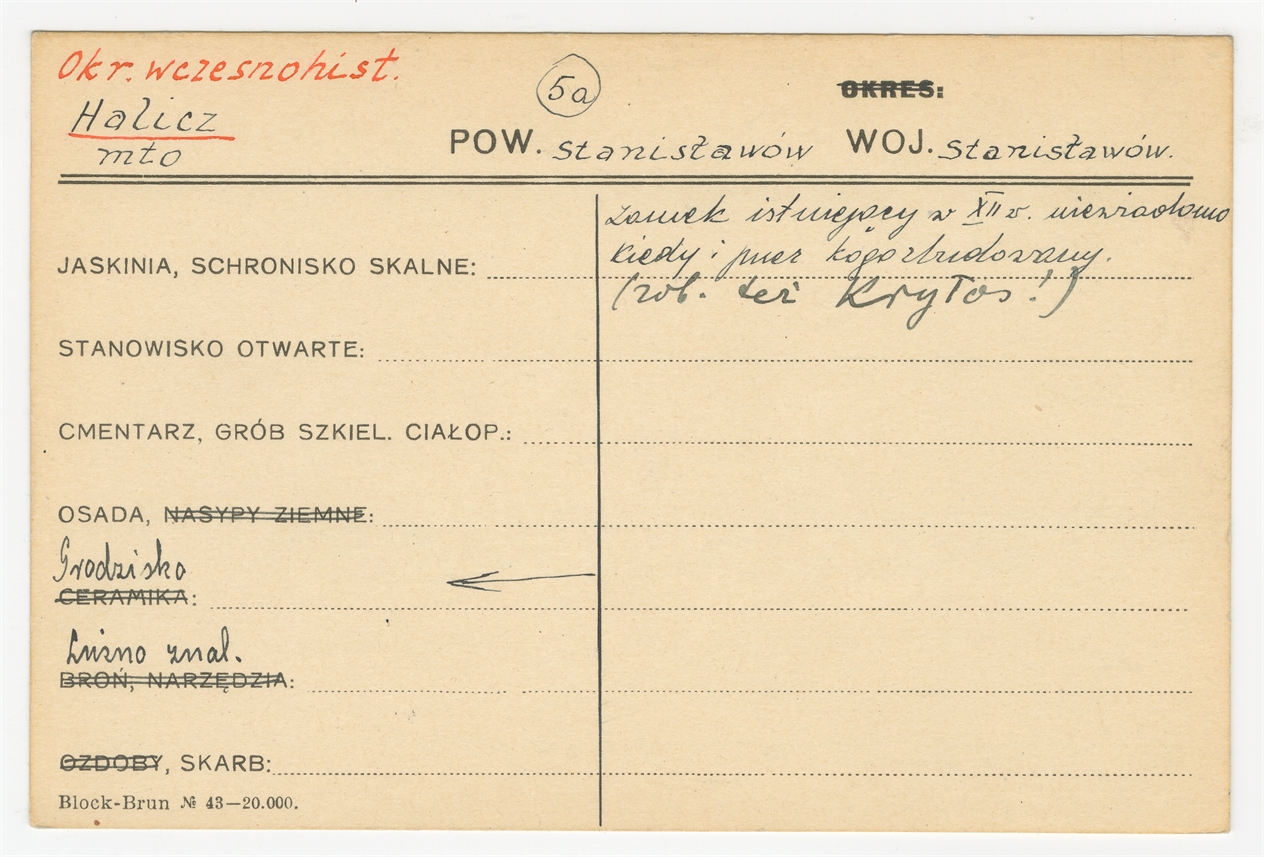 Okr. wczesnohist.
Halicz
mto
5a
OKRES:
POW. Stanisławów WOJ. Stanisławów.
zamek istniejący w XII w. niewiadomo
kiedy i przez kogo zbudowany.
(zob. też Kryłos!)
JASKINIA, SCHRONISKO SKALNE:
STANOWISKO OTWARTE:
CMENTARZ, GRÓB SZKIEL. CIAŁOP.:
OSADA, NASYPY ZIEMNE:
Grodzisko
CERAMIKA:
Luźno znal.
BROŃ, NARZĘDZIA:
OZDOBY, SKARB:
Block-Brun № 43—20.000.